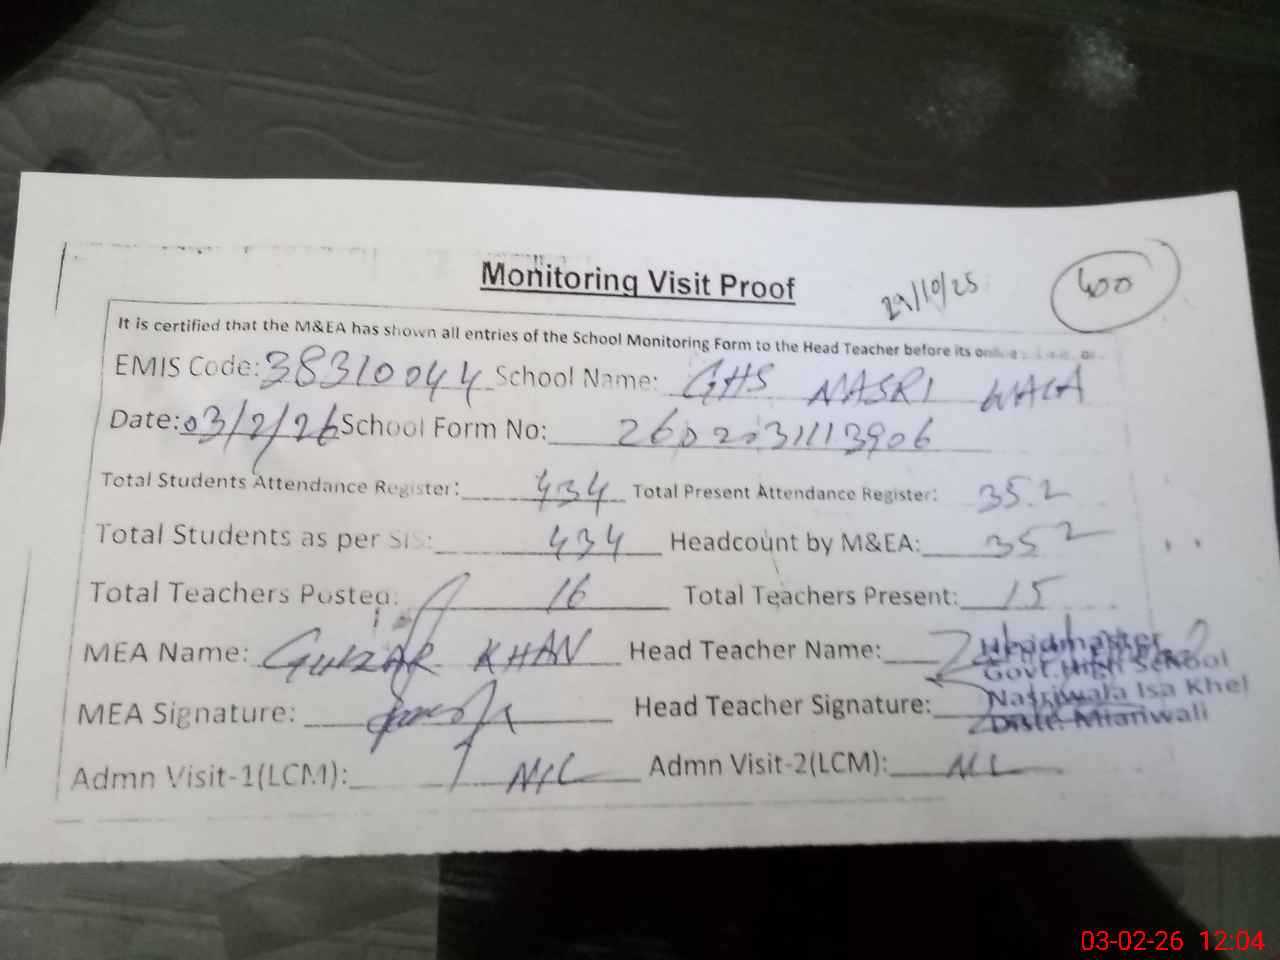 Monitoring Visit Proof
29/10/25
400
It is certified that the M&EA has shown all entries of the School Monitoring Form to the Head Teacher before its
EMIS Code: 38310044 School Name: GHS NASRI WALA
Date: 03/2/26 School Form No: 26020231113906
Total Students Attendance Register: 434 Total Present Attendance Register: 352
Total Students as per SIS: 434 Headcount by M&EA: 352
Total Teachers Posted: 16 Total Teachers Present: 15
MEA Name: GULZAR KHAN Head Teacher Name:
Headmaster
Govt. High School
MEA Signature: Head Teacher Signature:
Nasriwala Isa Khel
Distt. Mianwali
Admn Visit-1(LCM): NIL Admn Visit-2(LCM): NIL
03-02-26 12:04